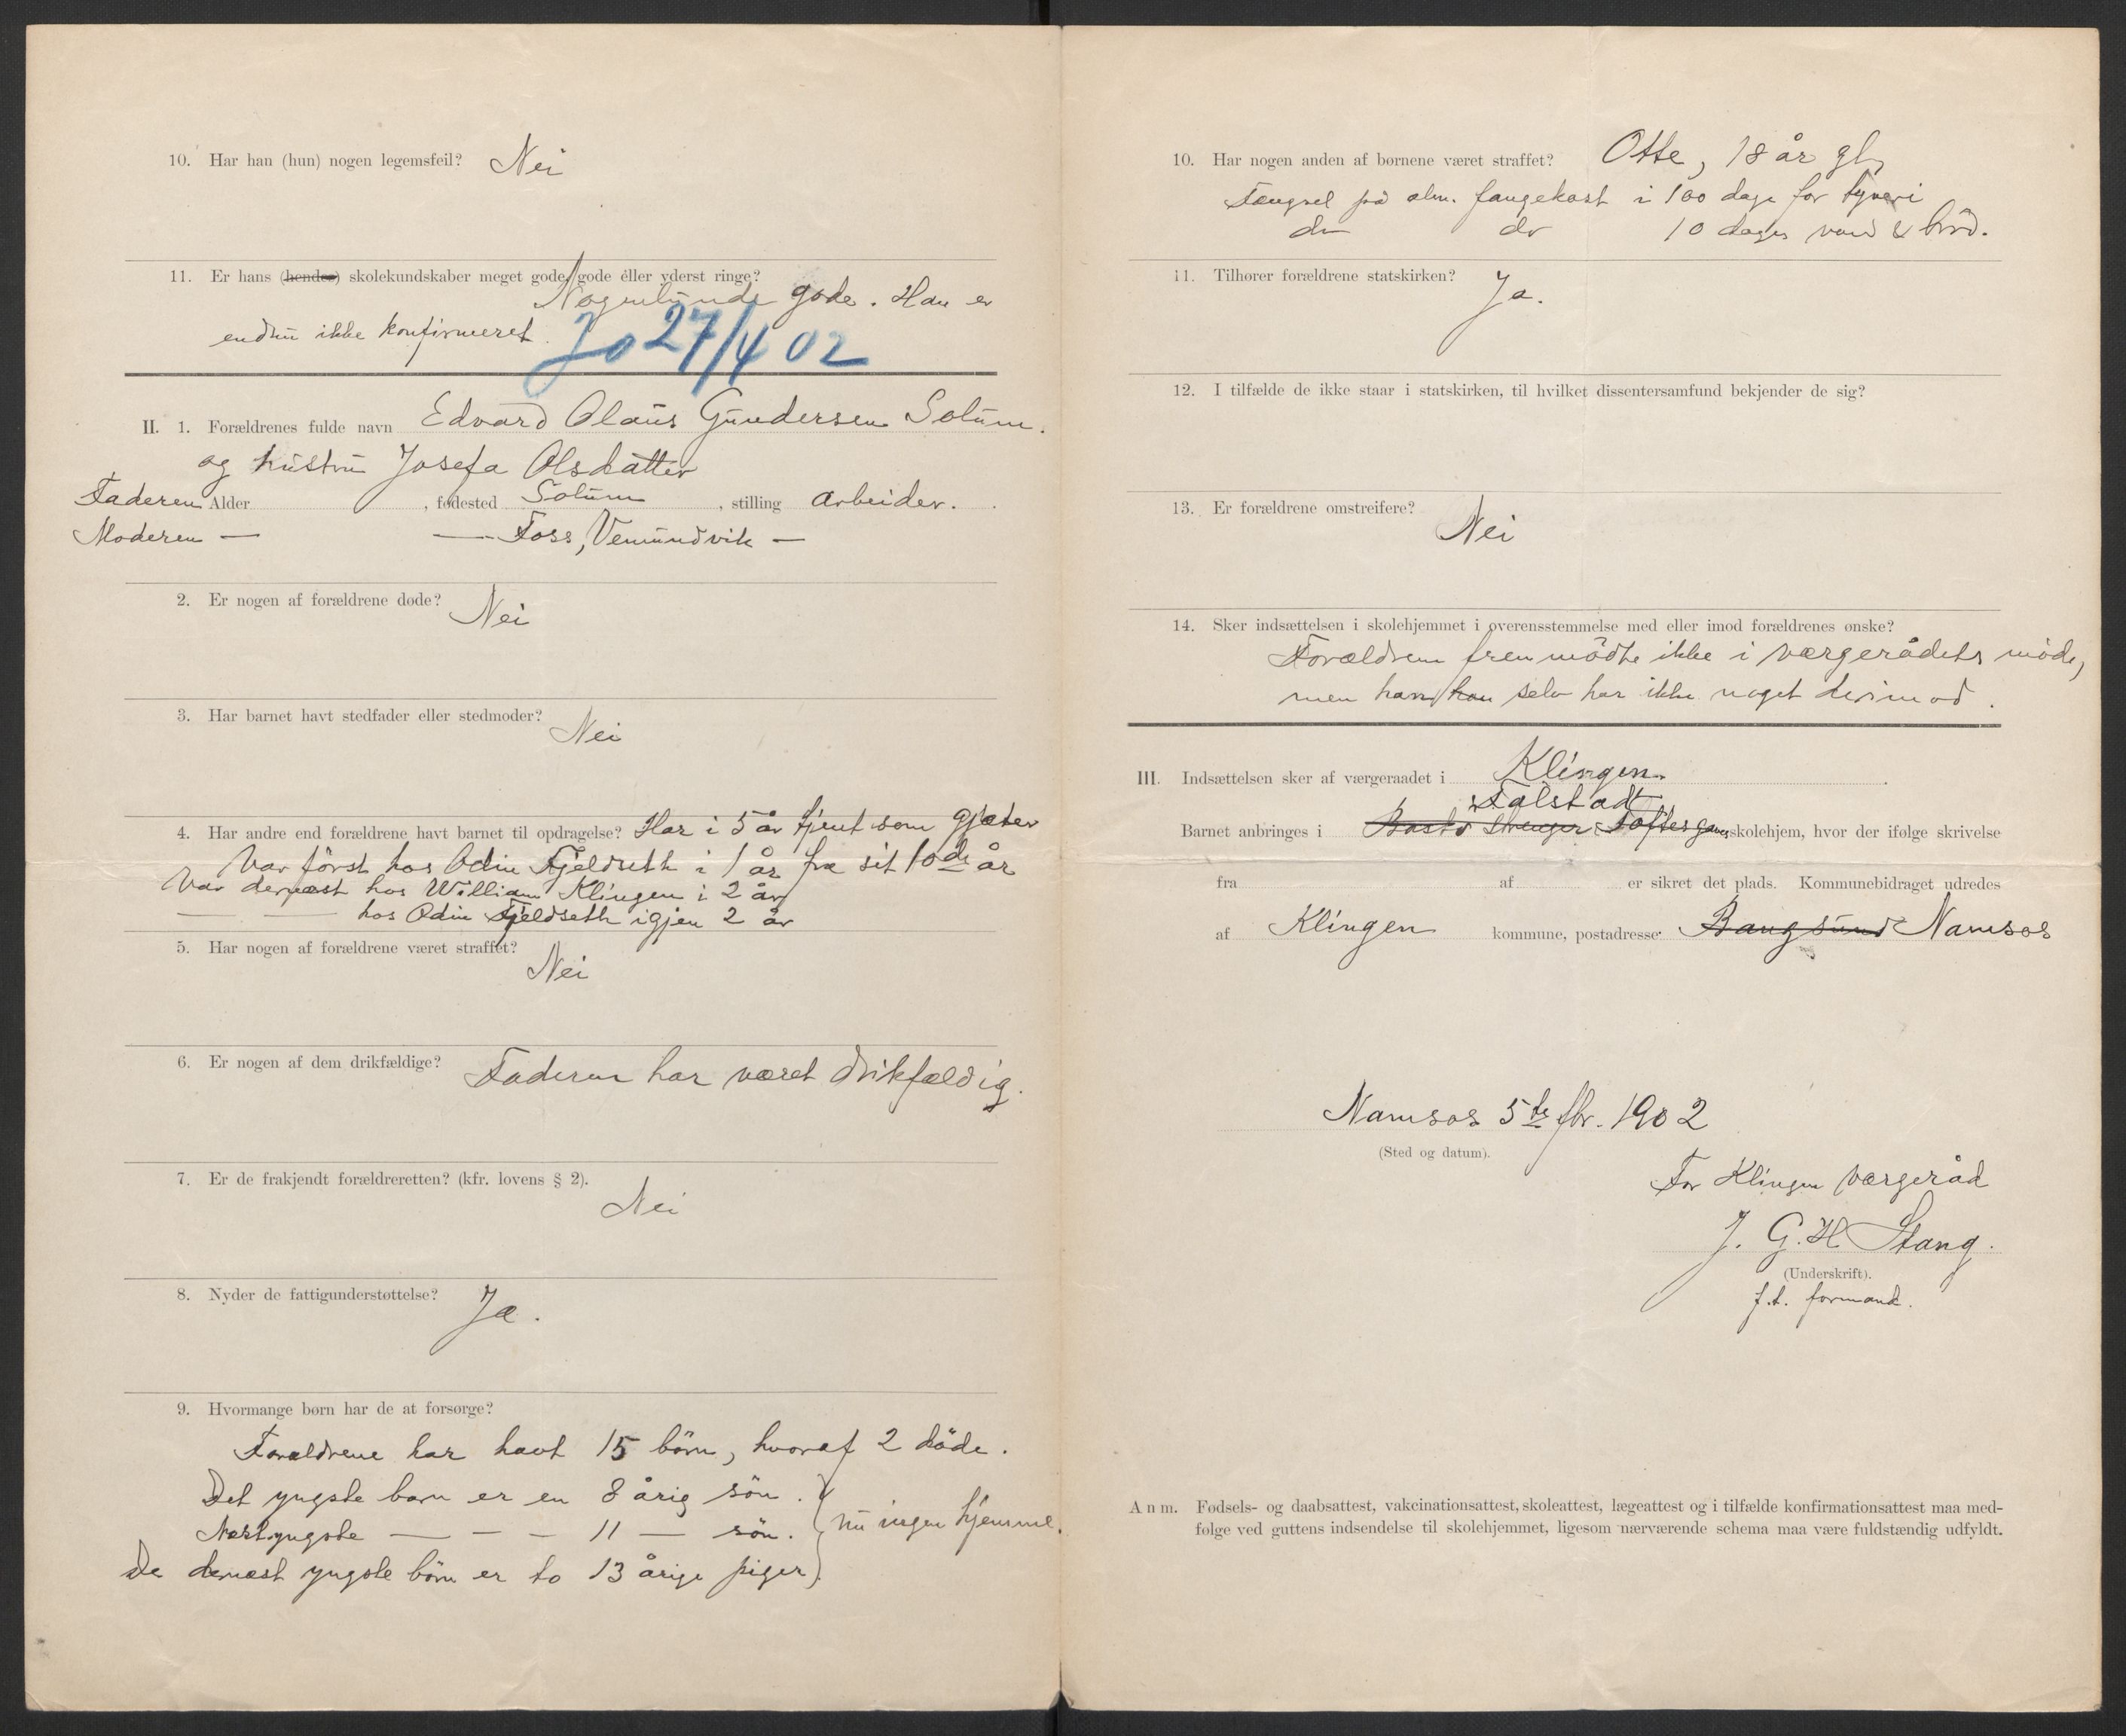 10. Har han (hun) nogen legemsfeil? Nei
11. Er hans (hendes) skolekundskaber meget gode, gode eller yderst ringe?
Nogenlunde gode. Han er
endnu ikke konfirmeret.
Jo 27/4 02
II. 1. Forældrenes fulde navn Edvard Olaus Gundersen Solum.
og hustru Josefa Olsdatter
Faderen Alder , fødested Solum , stilling arbeider.
Moderen — — Foss, Vemundvik —
2. Er nogen af forældrene døde? Nei
3. Har barnet havt stedfader eller stedmoder? Nei
4. Har andre end forældrene havt barnet til opdragelse? Har i 5 år tjent som gjæter
Var först hos Odin Fjeldseth i 1 år fra sit 10de år
Var dernæst hos William Klingen i 2 år
— — hos Odin Fjeldseth igjen 2 år
5. Har nogen af forældrene været straffet? Nei
6. Er nogen af dem drikfældige? Faderen har været drikfældig.
7. Er de frakjendt forældreretten? (kfr. lovens § 2). Nei
8. Nyder de fattigunderstøttelse? Ja.
9. Hvormange børn har de at forsørge?
Forældrene har havt 15 börn, hvoraf 2 döde.
Det yngste barn er en 8 årig sön.
Næstyngste — — — 11 — sön. nu ingen hjemme.
De dernæst yngste börn er to 13 årige piger
10. Har nogen anden af børnene været straffet? Otte, 18 år gl,
Fængsel på alm. fangekost i 100 dage for tyveri
do do 10 dages vand & bröd.
11. Tilhører forældrene statskirken? Ja.
12. I tilfælde de ikke staar i statskirken, til hvilket dissentersamfund bekjender de sig?
13. Er forældrene omstreifere? Nei
14. Sker indsættelsen i skolehjemmet i overensstemmelse med eller imod forældrenes ønske?
Forældrene fremmödte ikke i værgerådets möde,
men han han selv har ikke noget derimod.
III. Indsættelsen sker af værgeraadet i Klingen
Falstad
Barnet anbringes i Bastø Toftes gaves skolehjem, hvor der ifølge skrivelse
fra af er sikret det plads. Kommunebidraget udredes
af Klingen kommune, postadresse: Bangsund Namsos
Namsos 5te fbr. 1902
(Sted og datum).
For Klingen værgeråd
J. G. H Stang.
(Underskrift).
f. t. formand.
Anm. Fødsels- og daabsattest, vakcinationsattest, skoleattest, lægeattest og i tilfælde konfirmationsattest maa med-
følge ved guttens indsendelse til skolehjemmet, ligesom nærværende schema maa være fuldstændig udfyldt.